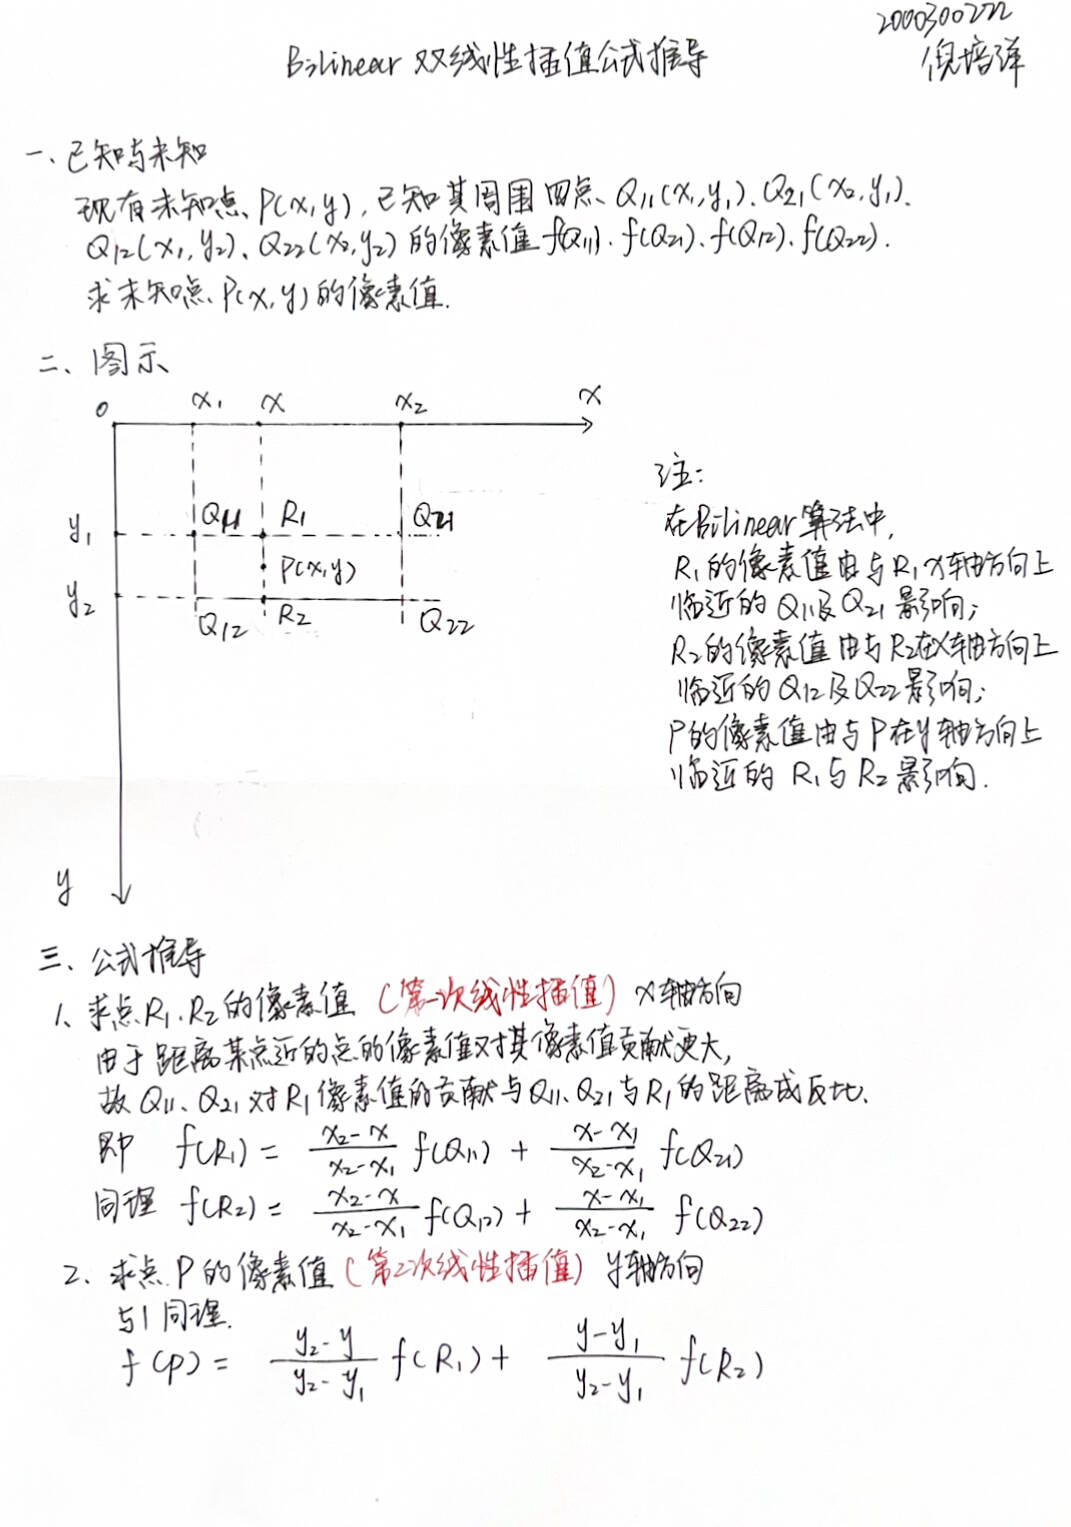 2000300222
倪培洋
Bilinear 双线性插值公式推导
一、已知与未知
现有未知点、P(x,y),已知其周围四点、Q11(x1,y1)、Q21(x2,y1)、
Q12(x1,y2)、Q22(x2,y2)的像素值f(Q11)、f(Q21)、f(Q12)、f(Q22).
求未知点、P(x,y)的像素值.
二、图示
0 x1 x x2 x
y1 Q11 R1 Q21
P(x,y)
y2 Q12 R2 Q22
y
注:
在Bilinear算法中,
R1的像素值由与R1x轴方向上
临近的Q11及Q21影响;
R2的像素值由与R2在x轴方向上
临近的Q12及Q22影响;
P的像素值由与P在y轴方向上
临近的R1与R2影响.
三、公式推导
1、求点R1、R2的像素值(第一次线性插值)x轴方向
由于距离某点近的点的像素值对其像素值贡献更大,
故Q11、Q21对R1像素值的贡献与Q11、Q21与R1的距离成反比.
即 f(R1) = (x2-x)/(x2-x1) f(Q11) + (x-x1)/(x2-x1) f(Q21)
同理 f(R2) = (x2-x)/(x2-x1) f(Q12) + (x-x1)/(x2-x1) f(Q22)
2、求点P的像素值(第2次线性插值)y轴方向
与1同理.
f(p) = (y2-y)/(y2-y1) f(R1) + (y-y1)/(y2-y1) f(R2)